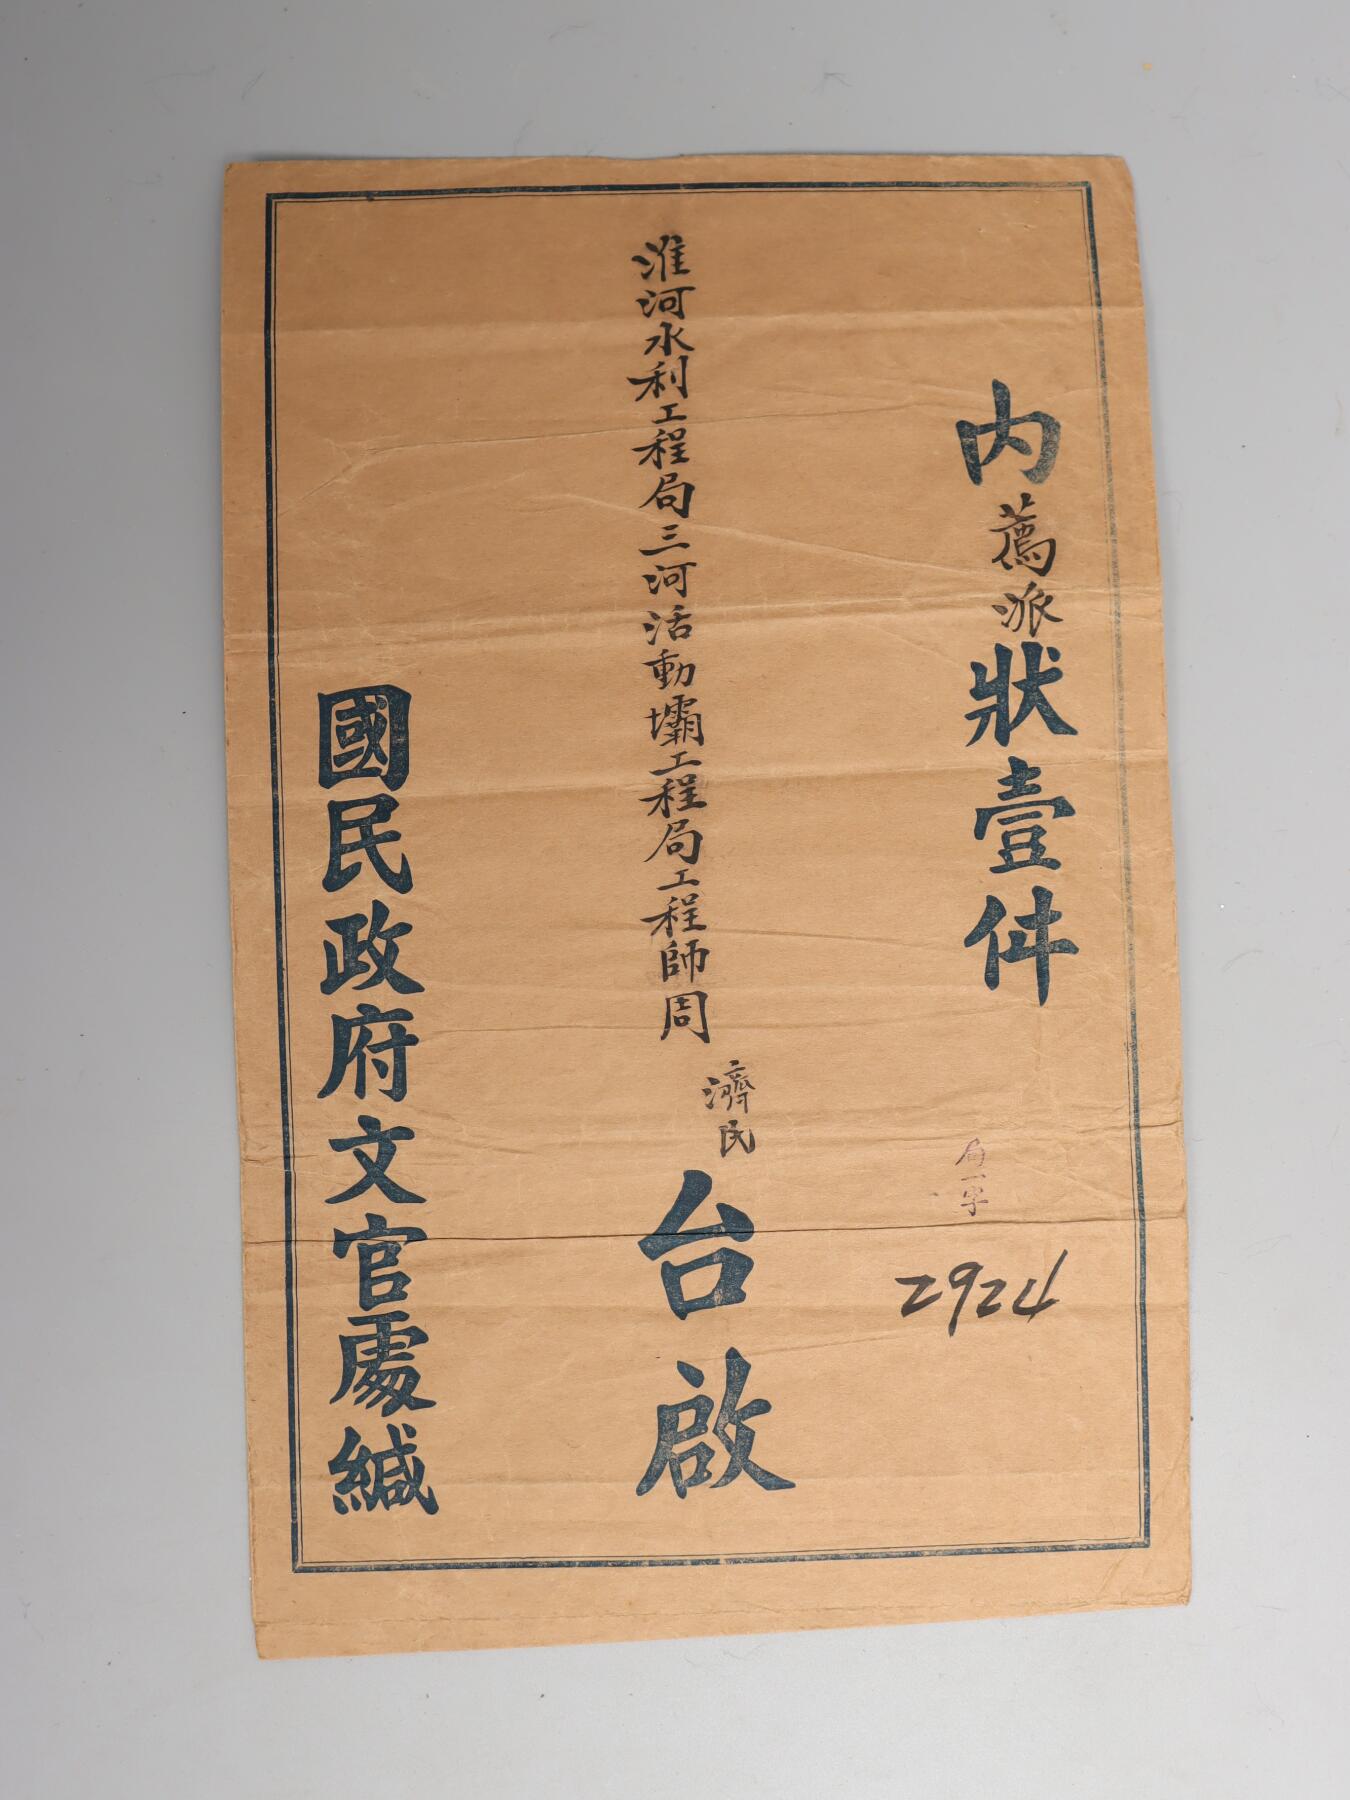 內薦派狀壹件
局一字
2924
淮河水利工程局三河活動壩工程局工程師周
濟民
台啟
國民政府文官處緘